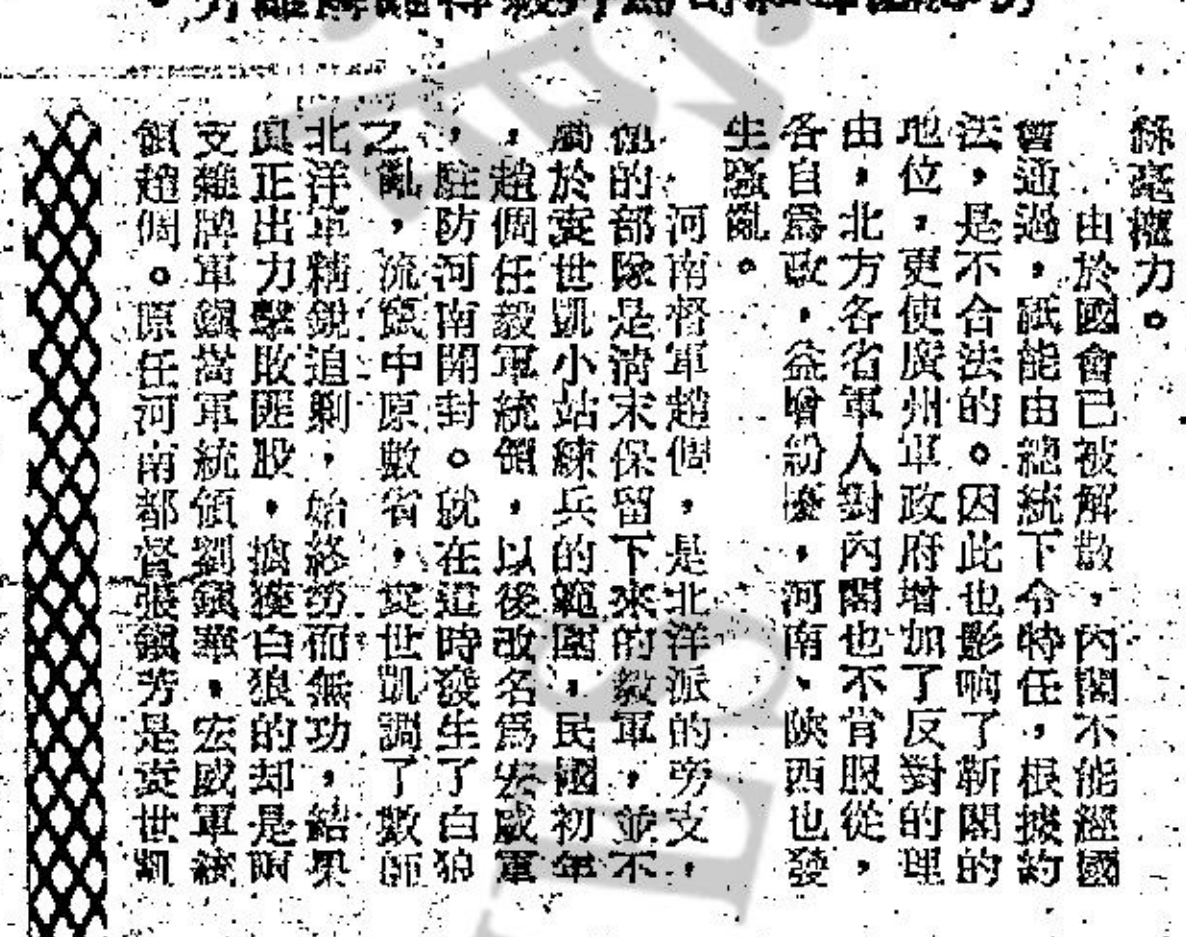 絲毫權力。
由於國會已被解散，內閣不能經國
會通過，祇能由總統下令特任，根據約
法，是不合法的。因此也影响了靳閣的
地位，更使廣州軍政府增加了反對的理
由，北方各省軍人對內閣也不肯服從，
各自爲政，益增紛擾，河南、陝西也發
生騷亂。
河南督軍趙倜，是北洋派的旁支，
他的部隊是清末保留下來的毅軍，並不
屬於袁世凱小站練兵的範圍，民國初年
，趙倜任毅軍統領，以後改名爲宏威軍
，駐防河南開封。就在這時發生了白狼
之亂，流竄中原數省，袁世凱調了數師
北洋軍精銳追剿，始終勞而無功，結果
眞正出力擊敗匪股，擒獲白狼的却是兩
支雜牌軍鎮嵩軍統領劉鎮華，宏威軍統
領趙倜。原任河南都督張鎮芳是袁世凱